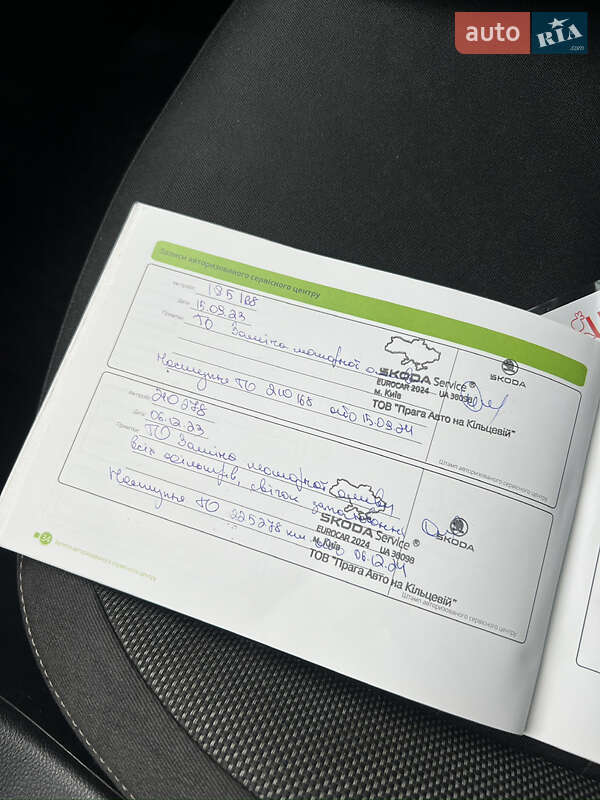 auto RIA.com
Записи авторизованого сервісного центру
195 168
Дата 15.09.23
Примітки ТО Заміна моторної оливи
Наступне ТО 210 168 або 15.09.24
SKODA Service®
EUROCAR 2024 UA 38098
м. Київ
ТОВ "Прага Авто на Кільцевій"
SKODA
Штамп авторизованого сервісного центру
210 278
Дата 06.12.23
Примітки ТО Заміна моторної оливи
всіх фільтрів, свічок запалювання
Наступне ТО 225 278 км або 06.12.24
SKODA Service®
EUROCAR 2024 UA 38098
м. Київ
ТОВ "Прага Авто на Кільцевій"
SKODA
Штамп авторизованого сервісного центру
24